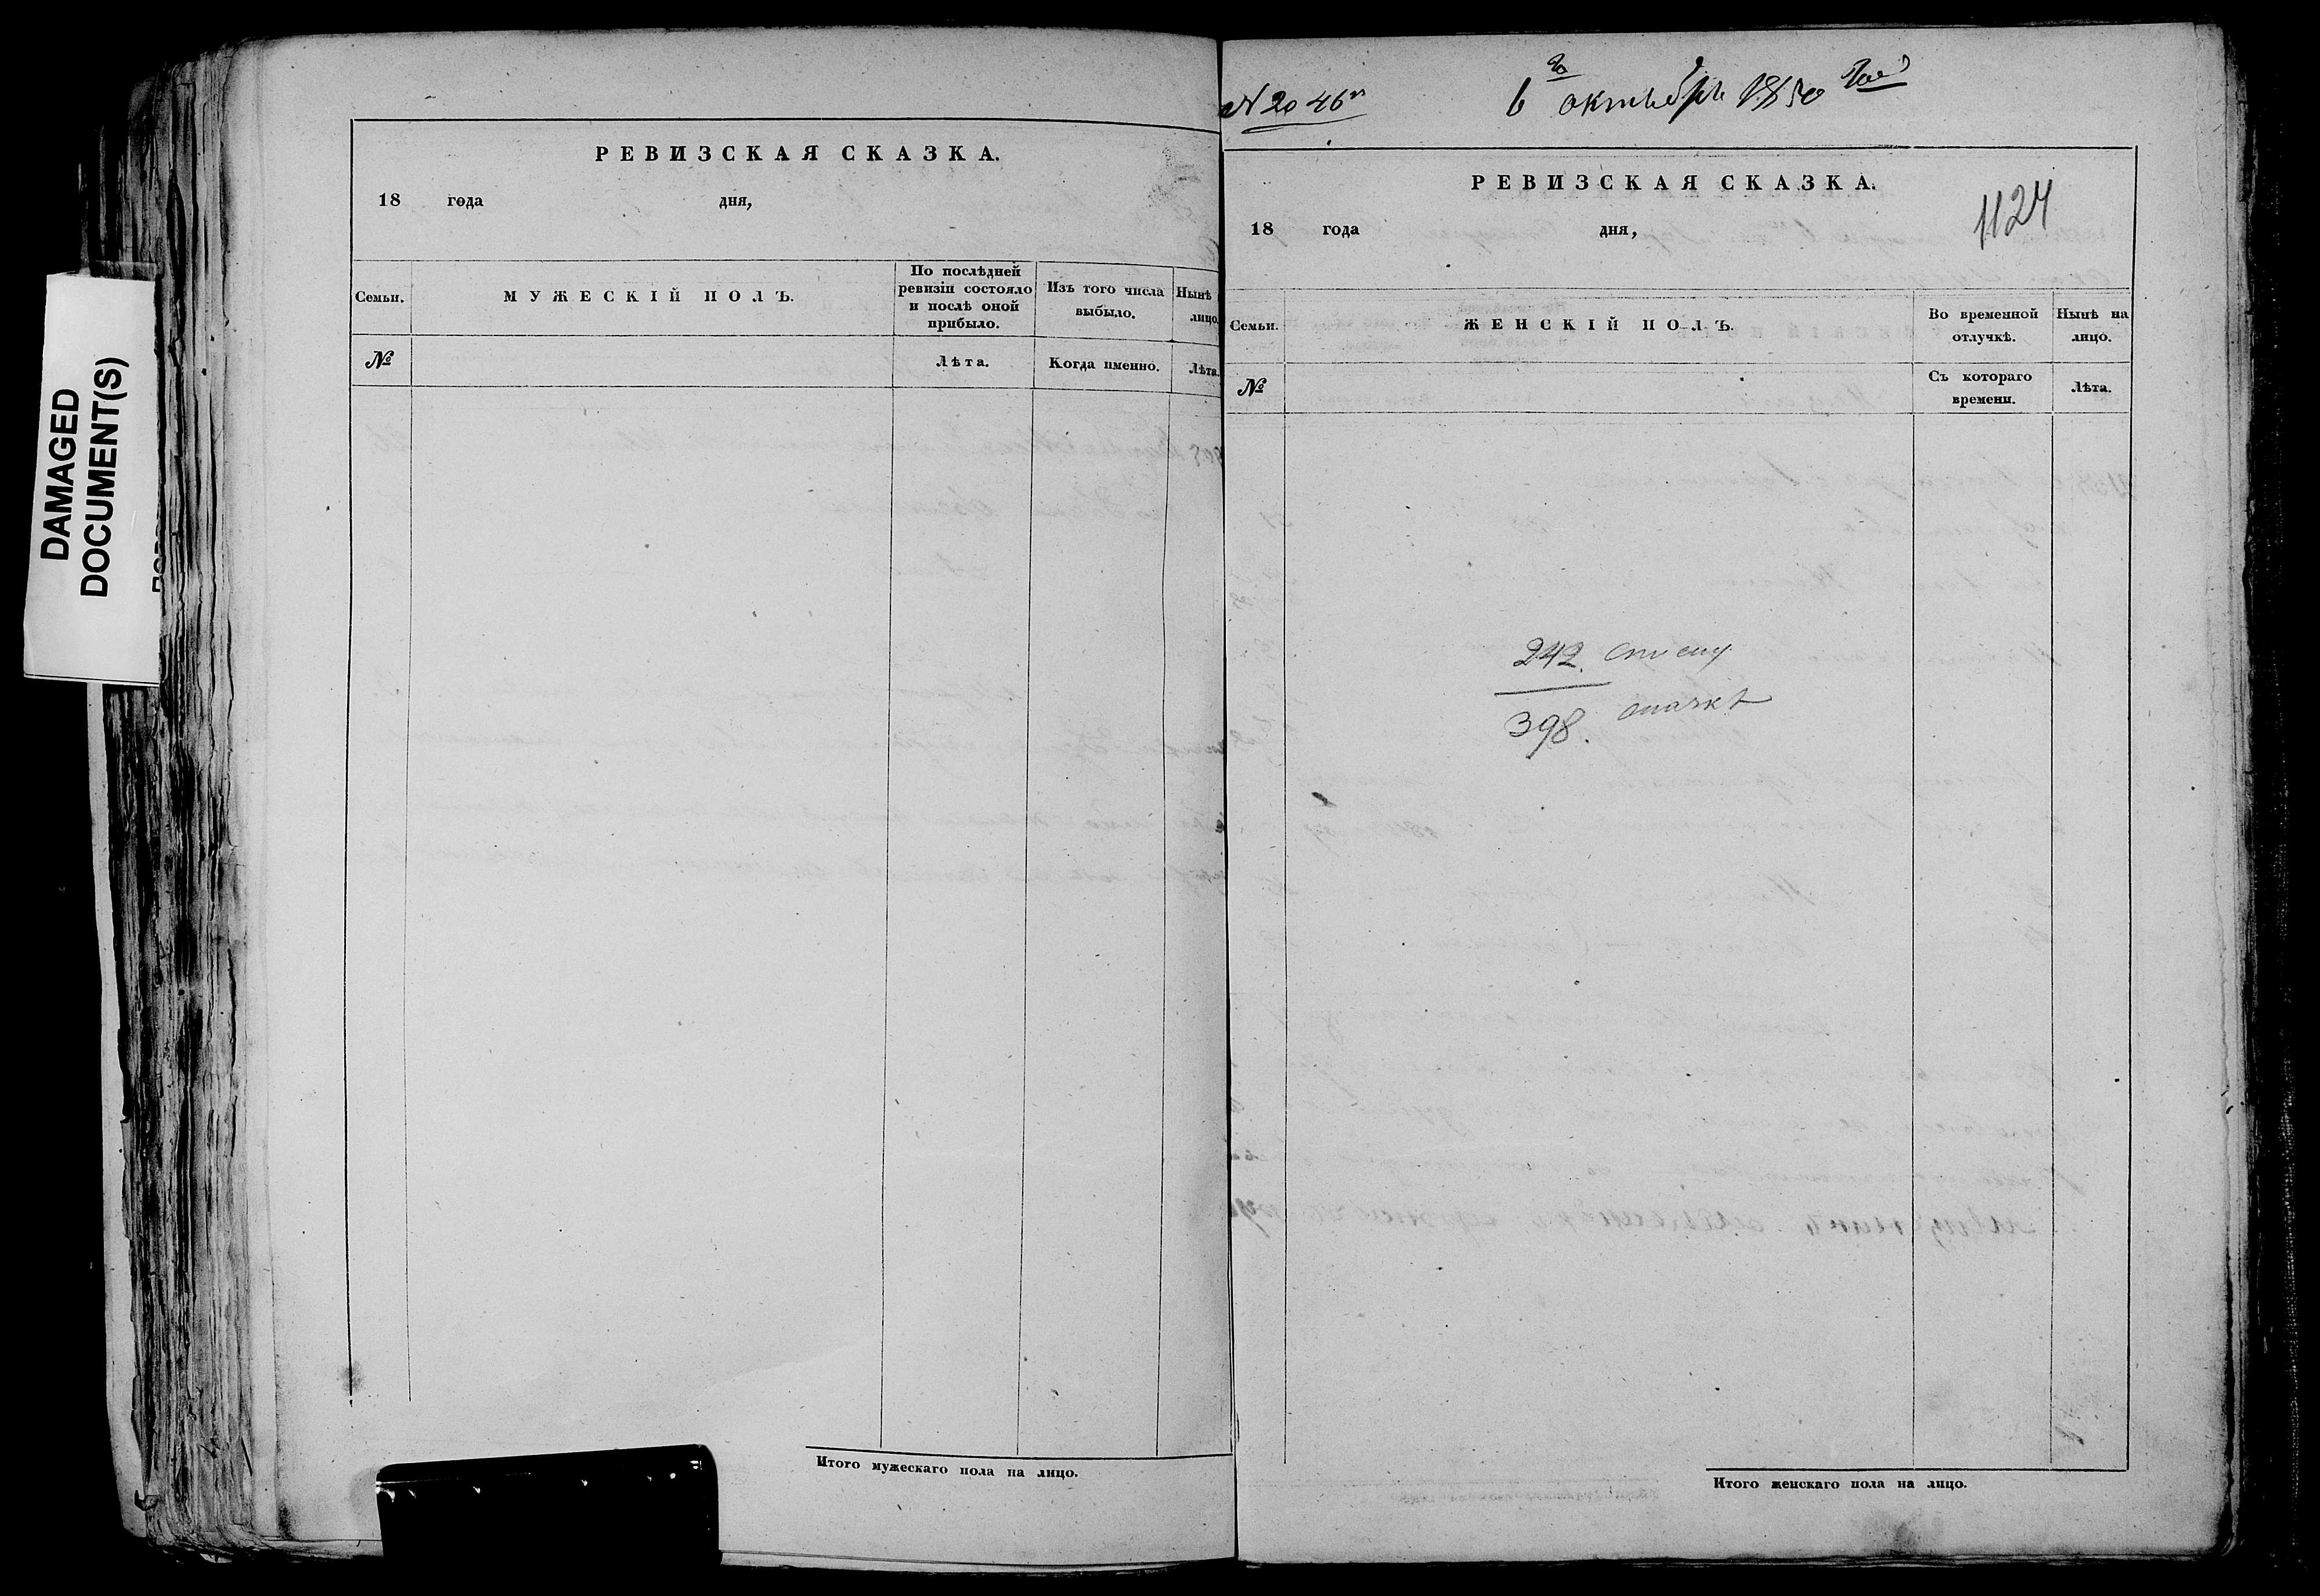 DAMAGED
DOCUMENT(S)
РЕВИЗСКАЯ СКАЗКА.
18 года дня,
Семьи.
МУЖЕСКІЙ ПОЛЪ.
По послѣдней
ревизіи состояло
и послѣ оной
прибыло.
Изъ того числа
выбыло.
Нынѣ
лицо.
№
Лѣта.
Когда именно.
Лѣта.
Итого мужескаго пола на лицо.
N 2046
6 октября 1850 года
РЕВИЗСКАЯ СКАЗКА.
1124
18 года дня,
Семьи.
ЖЕНСКІЙ ПОЛЪ.
Во временной
отлучкѣ.
Нынѣ на
лицо.
№
Съ котораго
времени.
Лѣта.
242.
398.
Итого женскаго пола на лицо.